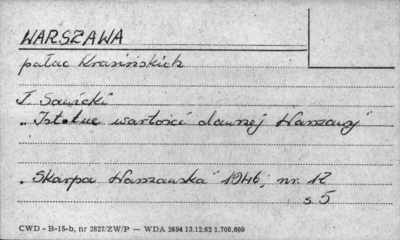 WARSZAWA
pałac Krasińskich
T. Sawicki
„Istotne wartości dawnej Warszawy"
„Skarpa Warszawska" 1946, nr. 12
s. 5
CWD - B-15-b, nr 2827/ZW/P — WDA 2694 13.12.62 1.700.000